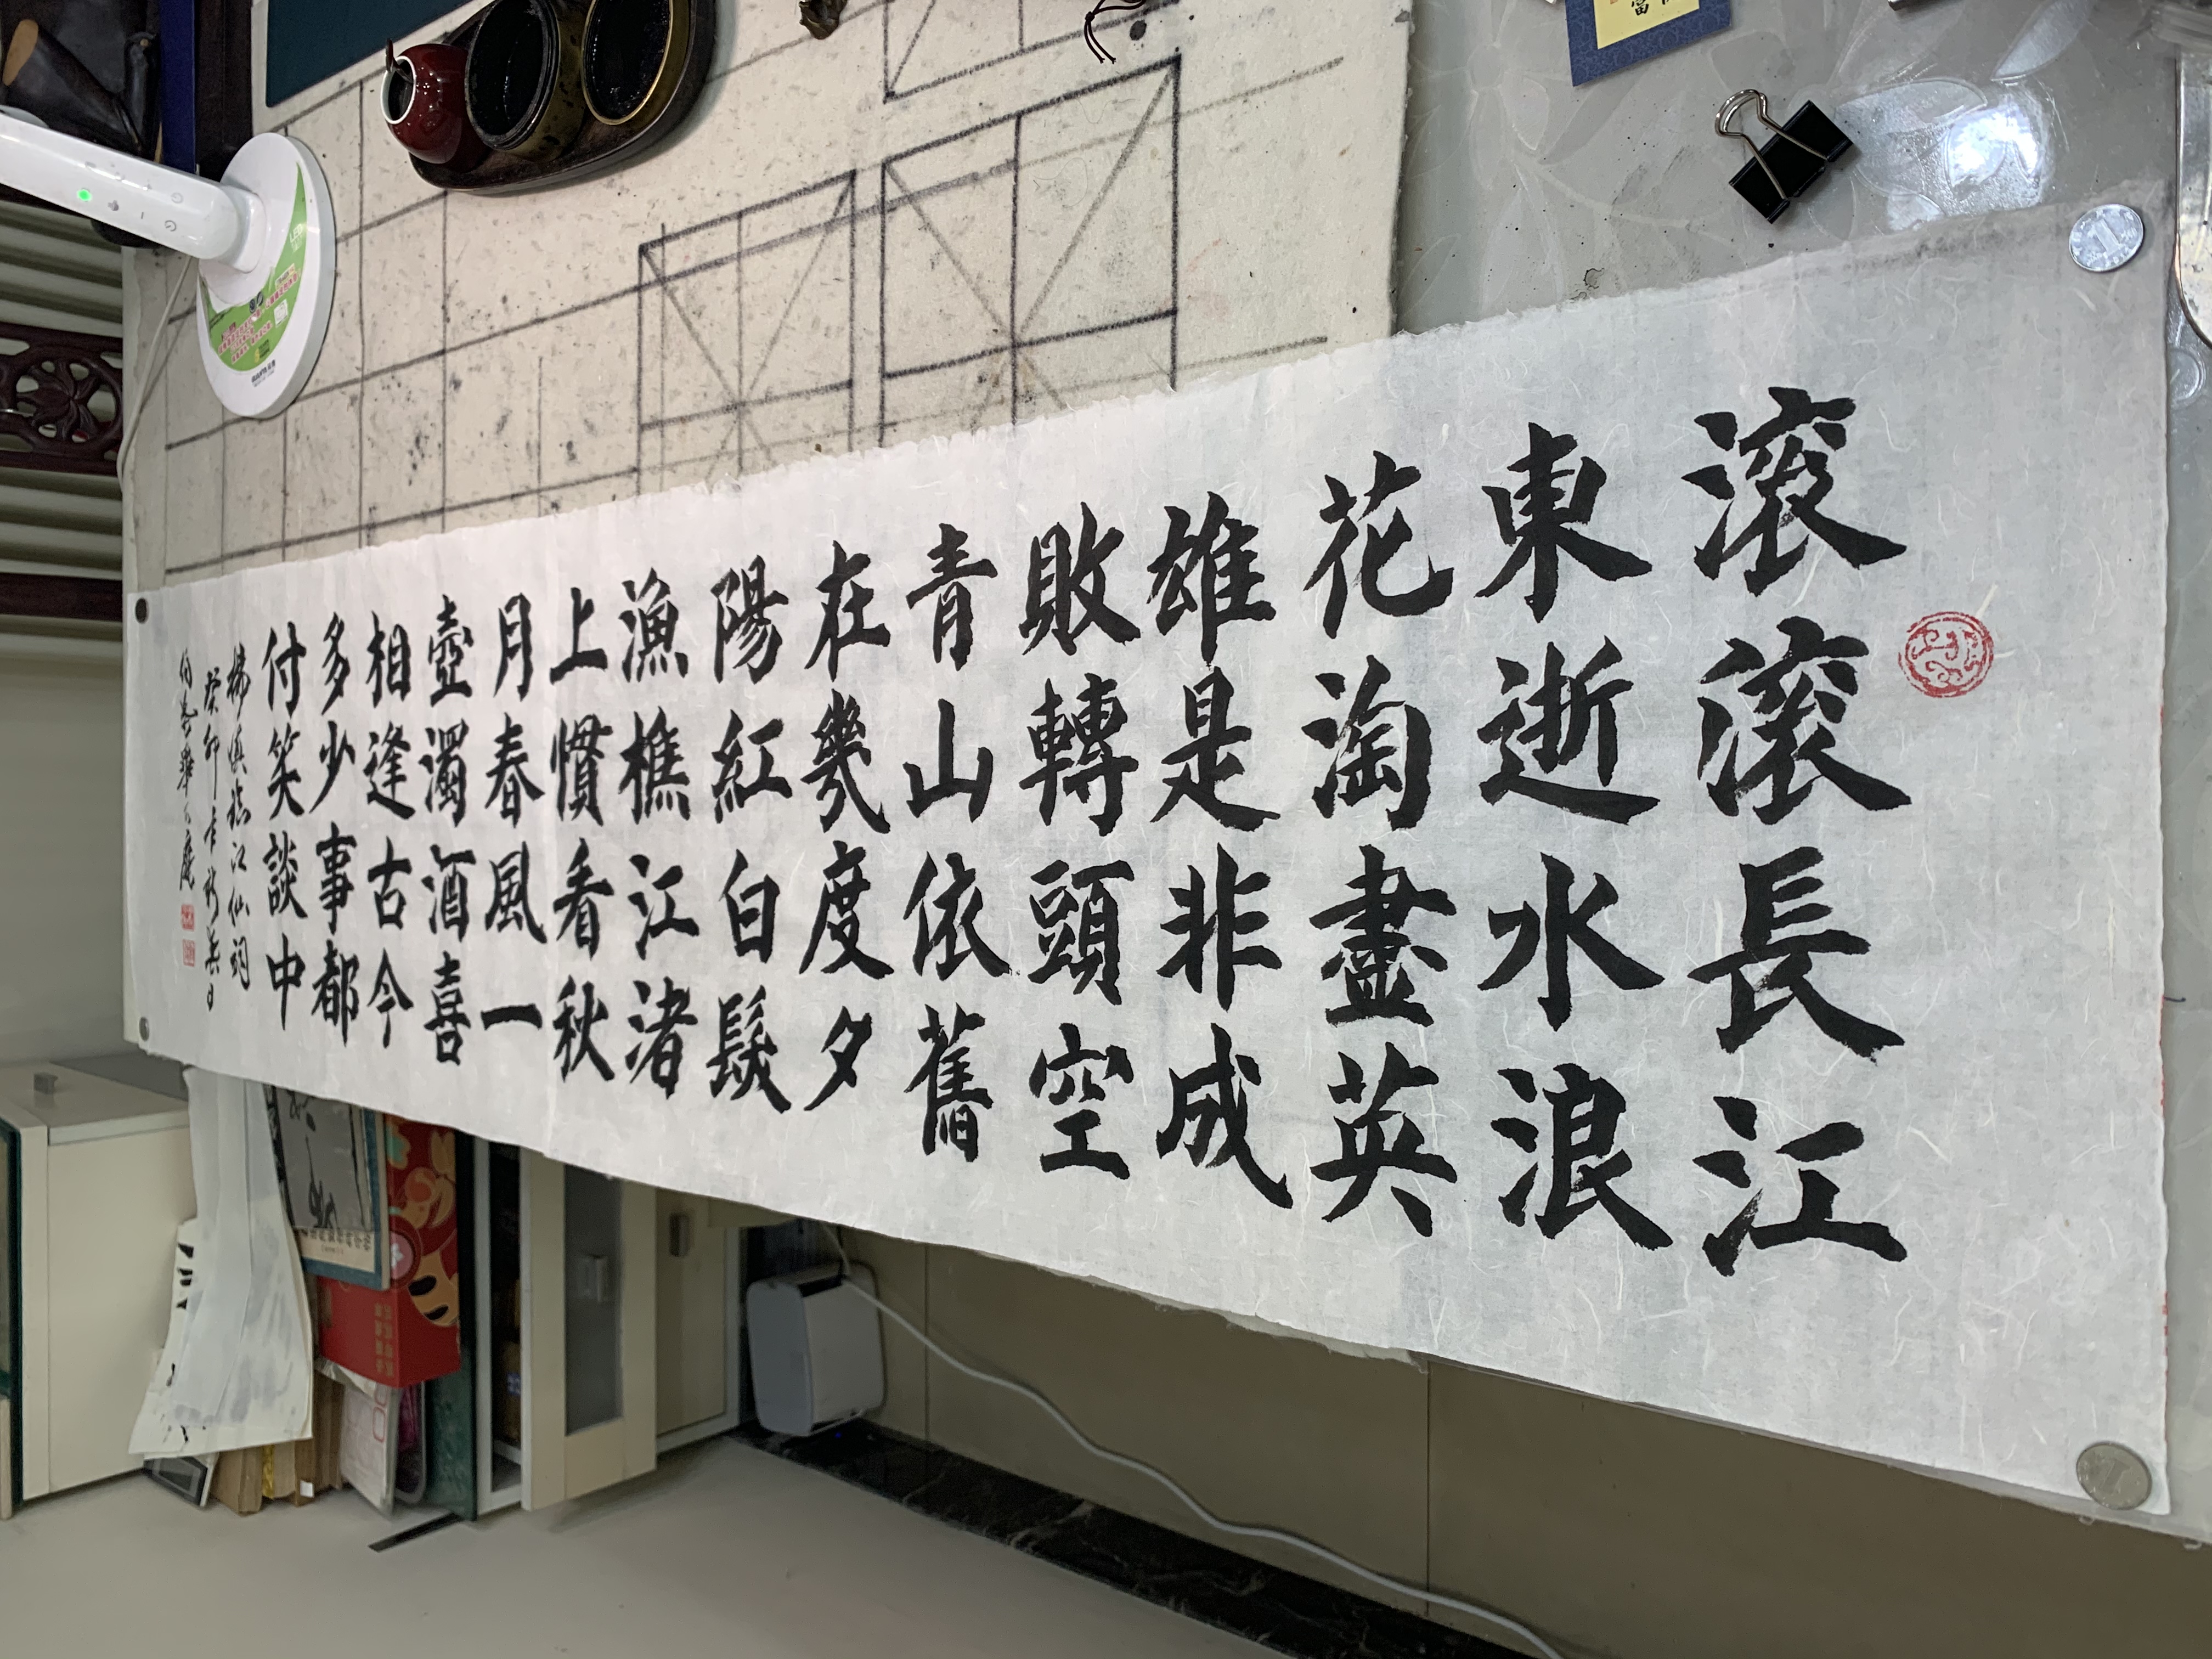 滾滾長江
東逝水浪
花淘盡英
雄是非成
敗轉頭空
青山依舊
在幾度夕
陽紅白髮
漁樵江渚
上慣看秋
月春風一
壺濁酒喜
相逢古今
多少事都
付笑談中
楊慎臨江仙詞
癸卯年